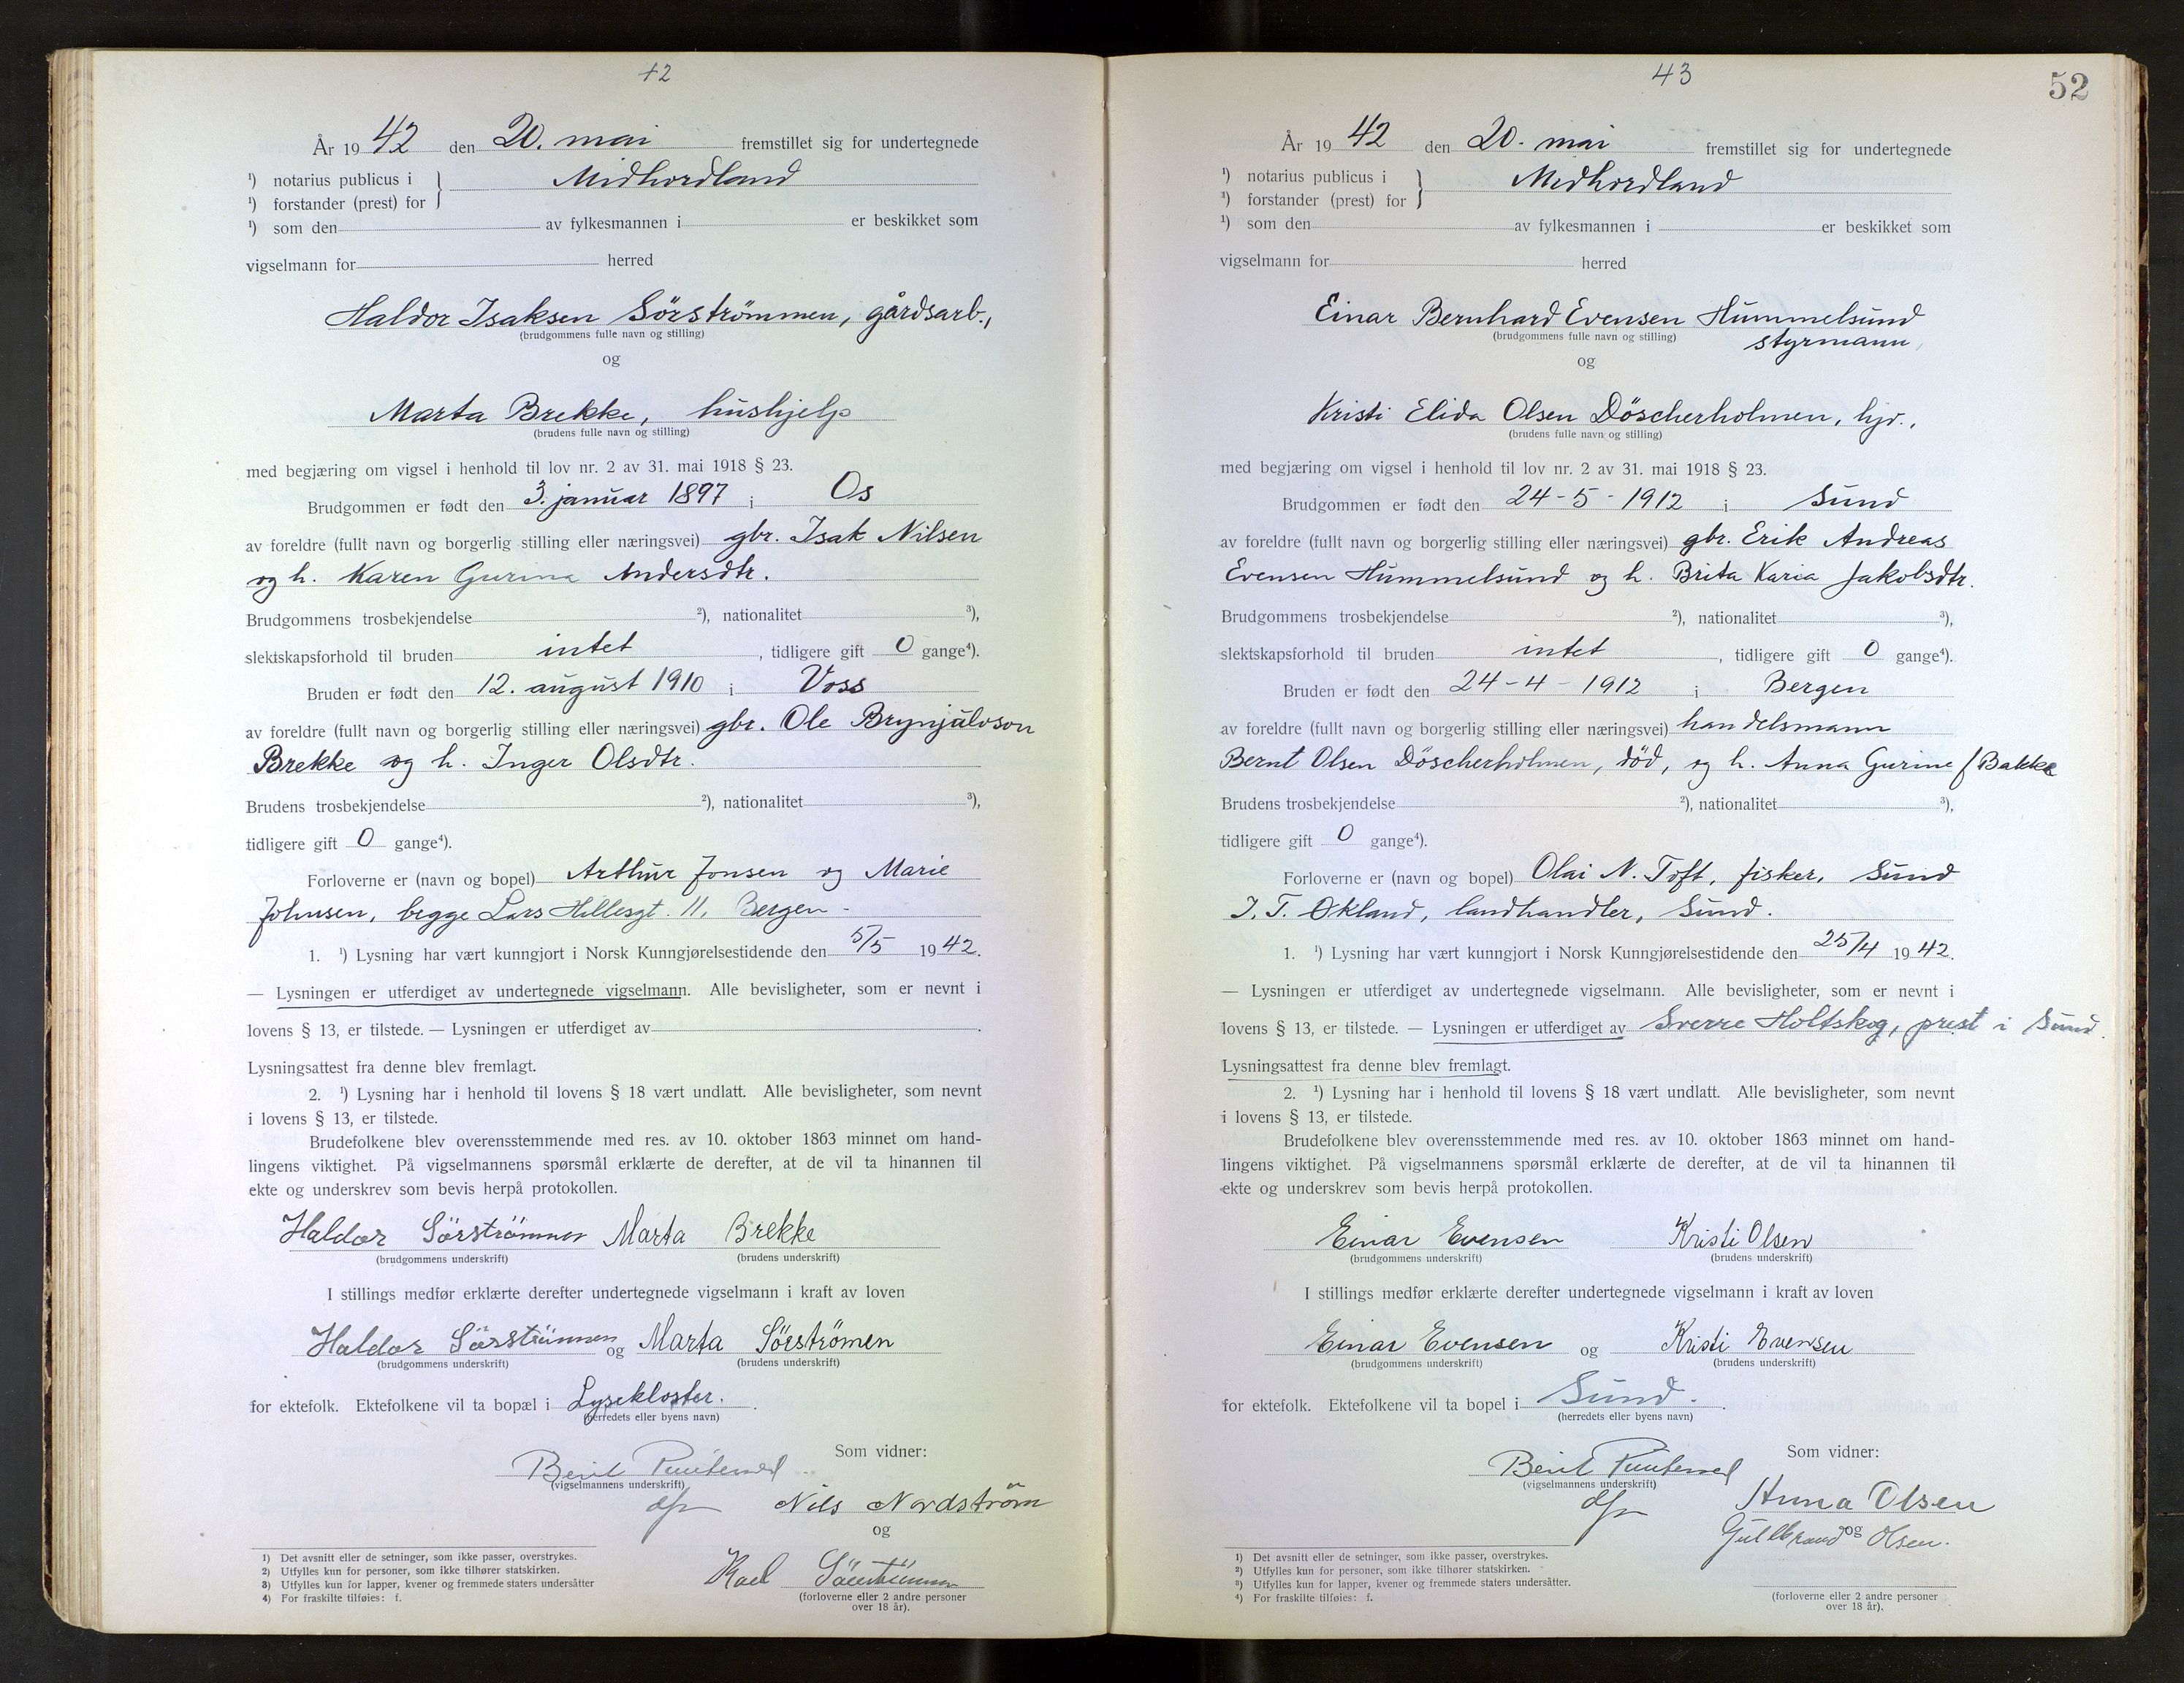 42
År 1942 den 20. mai fremstillet sig for undertegnede
¹) notarius publicus i } Midhordland
¹) forstander (prest) for
¹) som den av fylkesmannen i er beskikket som
vigselmann for herred
Haldor Isaksen Sörströmmen, gårdsarb.,
(brudgommens fulle navn og stilling)
og
Marta Brekke, hushjelp
(brudens fulle navn og stilling)
med begjæring om vigsel i henhold til lov nr. 2 av 31. mai 1918 § 23.
Brudgommen er født den 3. januar 1897 i Os
av foreldre (fullt navn og borgerlig stilling eller næringsvei) gbr. Isak Nilsen
og h. Karen Gurina Andersdtr.
Brudgommens trosbekjendelse ²), nationalitet ³),
slektskapsforhold til bruden intet, tidligere gift 0 gange⁴).
Bruden er født den 12. august 1910 i Voss
av foreldre (fullt navn og borgerlig stilling eller næringsvei) gbr. Ole Brynjulvson
Brekke og h. Inger Olsdtr.
Brudens trosbekjendelse ²), nationalitet ³),
tidligere gift 0 gange⁴).
Forloverne er (navn og bopel) Arthur Jonsen og Marie
Johnsen, begge Lars Hillesgt. 11, Bergen -
1. ¹) Lysning har vært kunngjort i Norsk Kunngjørelsestidende den 5/5 1942.
— Lysningen er utferdiget av undertegnede vigselmann. Alle bevisligheter, som er nevnt i
lovens § 13, er tilstede. — Lysningen er utferdiget av .
Lysningsattest fra denne blev fremlagt.
2. ¹) Lysning har i henhold til lovens § 18 vært undlatt. Alle bevisligheter, som nevnt
i lovens § 13, er tilstede.
Brudefolkene blev overensstemmende med res. av 10. oktober 1863 minnet om hand-
lingens viktighet. På vigselmannens spørsmål erklærte de derefter, at de vil ta hinannen til
ekte og underskrev som bevis herpå protokollen.
Haldor Sörströmmen Marta Brekke
(brudgommens underskrift) (brudens underskrift)
I stillings medfør erklærte derefter undertegnede vigselmann i kraft av loven
Haldor Sörströmmen og Marta Sörströmen
(brudgommens underskrift) (brudens underskrift)
for ektefolk. Ektefolkene vil ta bopæl i Lysekloster.
(herredets eller byens navn)
Som vidner:
Berit
(vigselmannens underskrift)
dfm Nils Nordström
og
Karl
(forloverne eller 2 andre personer
over 18 år).
1) Det avsnitt eller de setninger, som ikke passer, overstrykes.
2) Utfylles kun for personer, som ikke tilhører statskirken.
3) Utfylles kun for lapper, kvener og fremmede staters undersåtter
4) For fraskilte tilføies: f.
43
52
År 1942 den 20. mai fremstillet sig for undertegnede
¹) notarius publicus i } Midhordland
¹) forstander (prest) for
¹) som den av fylkesmannen i er beskikket som
vigselmann for herred
Einar Bernhard Evensen Hummelsund
(brudgommens fulle navn og stilling) styrmann,
og
Kristi Elida Olsen Döscherholmen, hjv.,
(brudens fulle navn og stilling)
med begjæring om vigsel i henhold til lov nr. 2 av 31. mai 1918 § 23.
Brudgommen er født den 24-5-1912 i Sund
av foreldre (fullt navn og borgerlig stilling eller næringsvei) gbr. Erik Andreas
Evensen Hummelsund og h. Brita Karia Jakobsdtr.
Brudgommens trosbekjendelse ²), nationalitet ³),
slektskapsforhold til bruden intet, tidligere gift 0 gange⁴).
Bruden er født den 24-4-1912 i Bergen
av foreldre (fullt navn og borgerlig stilling eller næringsvei) handelsmann
Bernt Olsen Döscherholmen, död, og h. Anna Gurine f Bakke
Brudens trosbekjendelse ²), nationalitet ³),
tidligere gift 0 gange⁴).
Forloverne er (navn og bopel) Olai N. Toft, fisker, Sund
J. T. Økland, landhandler, Sund.
1. ¹) Lysning har vært kunngjort i Norsk Kunngjørelsestidende den 25/4 1942.
— Lysningen er utferdiget av undertegnede vigselmann. Alle bevisligheter, som er nevnt i
lovens § 13, er tilstede. — Lysningen er utferdiget av Sverre Holtskog, prest i Sund.
Lysningsattest fra denne blev fremlagt.
2. ¹) Lysning har i henhold til lovens § 18 vært undlatt. Alle bevisligheter, som nevnt
i lovens § 13, er tilstede.
Brudefolkene blev overensstemmende med res. av 10. oktober 1863 minnet om hand-
lingens viktighet. På vigselmannens spørsmål erklærte de derefter, at de vil ta hinannen til
ekte og underskrev som bevis herpå protokollen.
Einar Evensen Kristi Olsen
(brudgommens underskrift) (brudens underskrift)
I stillings medfør erklærte derefter undertegnede vigselmann i kraft av loven
Einar Evensen og Kristi Evensen
(brudgommens underskrift) (brudens underskrift)
for ektefolk. Ektefolkene vil ta bopel i Sund.
(herredets eller byens navn)
Som vidner:
Berit
(vigselmannens underskrift)
dfm Anna Olsen
og
Guldbrand Olsen.
(forloverne eller 2 andre personer
over 18 år).
1) Det avsnitt eller de setninger, som ikke passer, overstrykes.
2) Utfylles kun for personer, som ikke tilhører statskirken.
3) Utfylles kun for lapper, kvener og fremmede staters undersåtter.
4) For fraskilte tilføies: f.